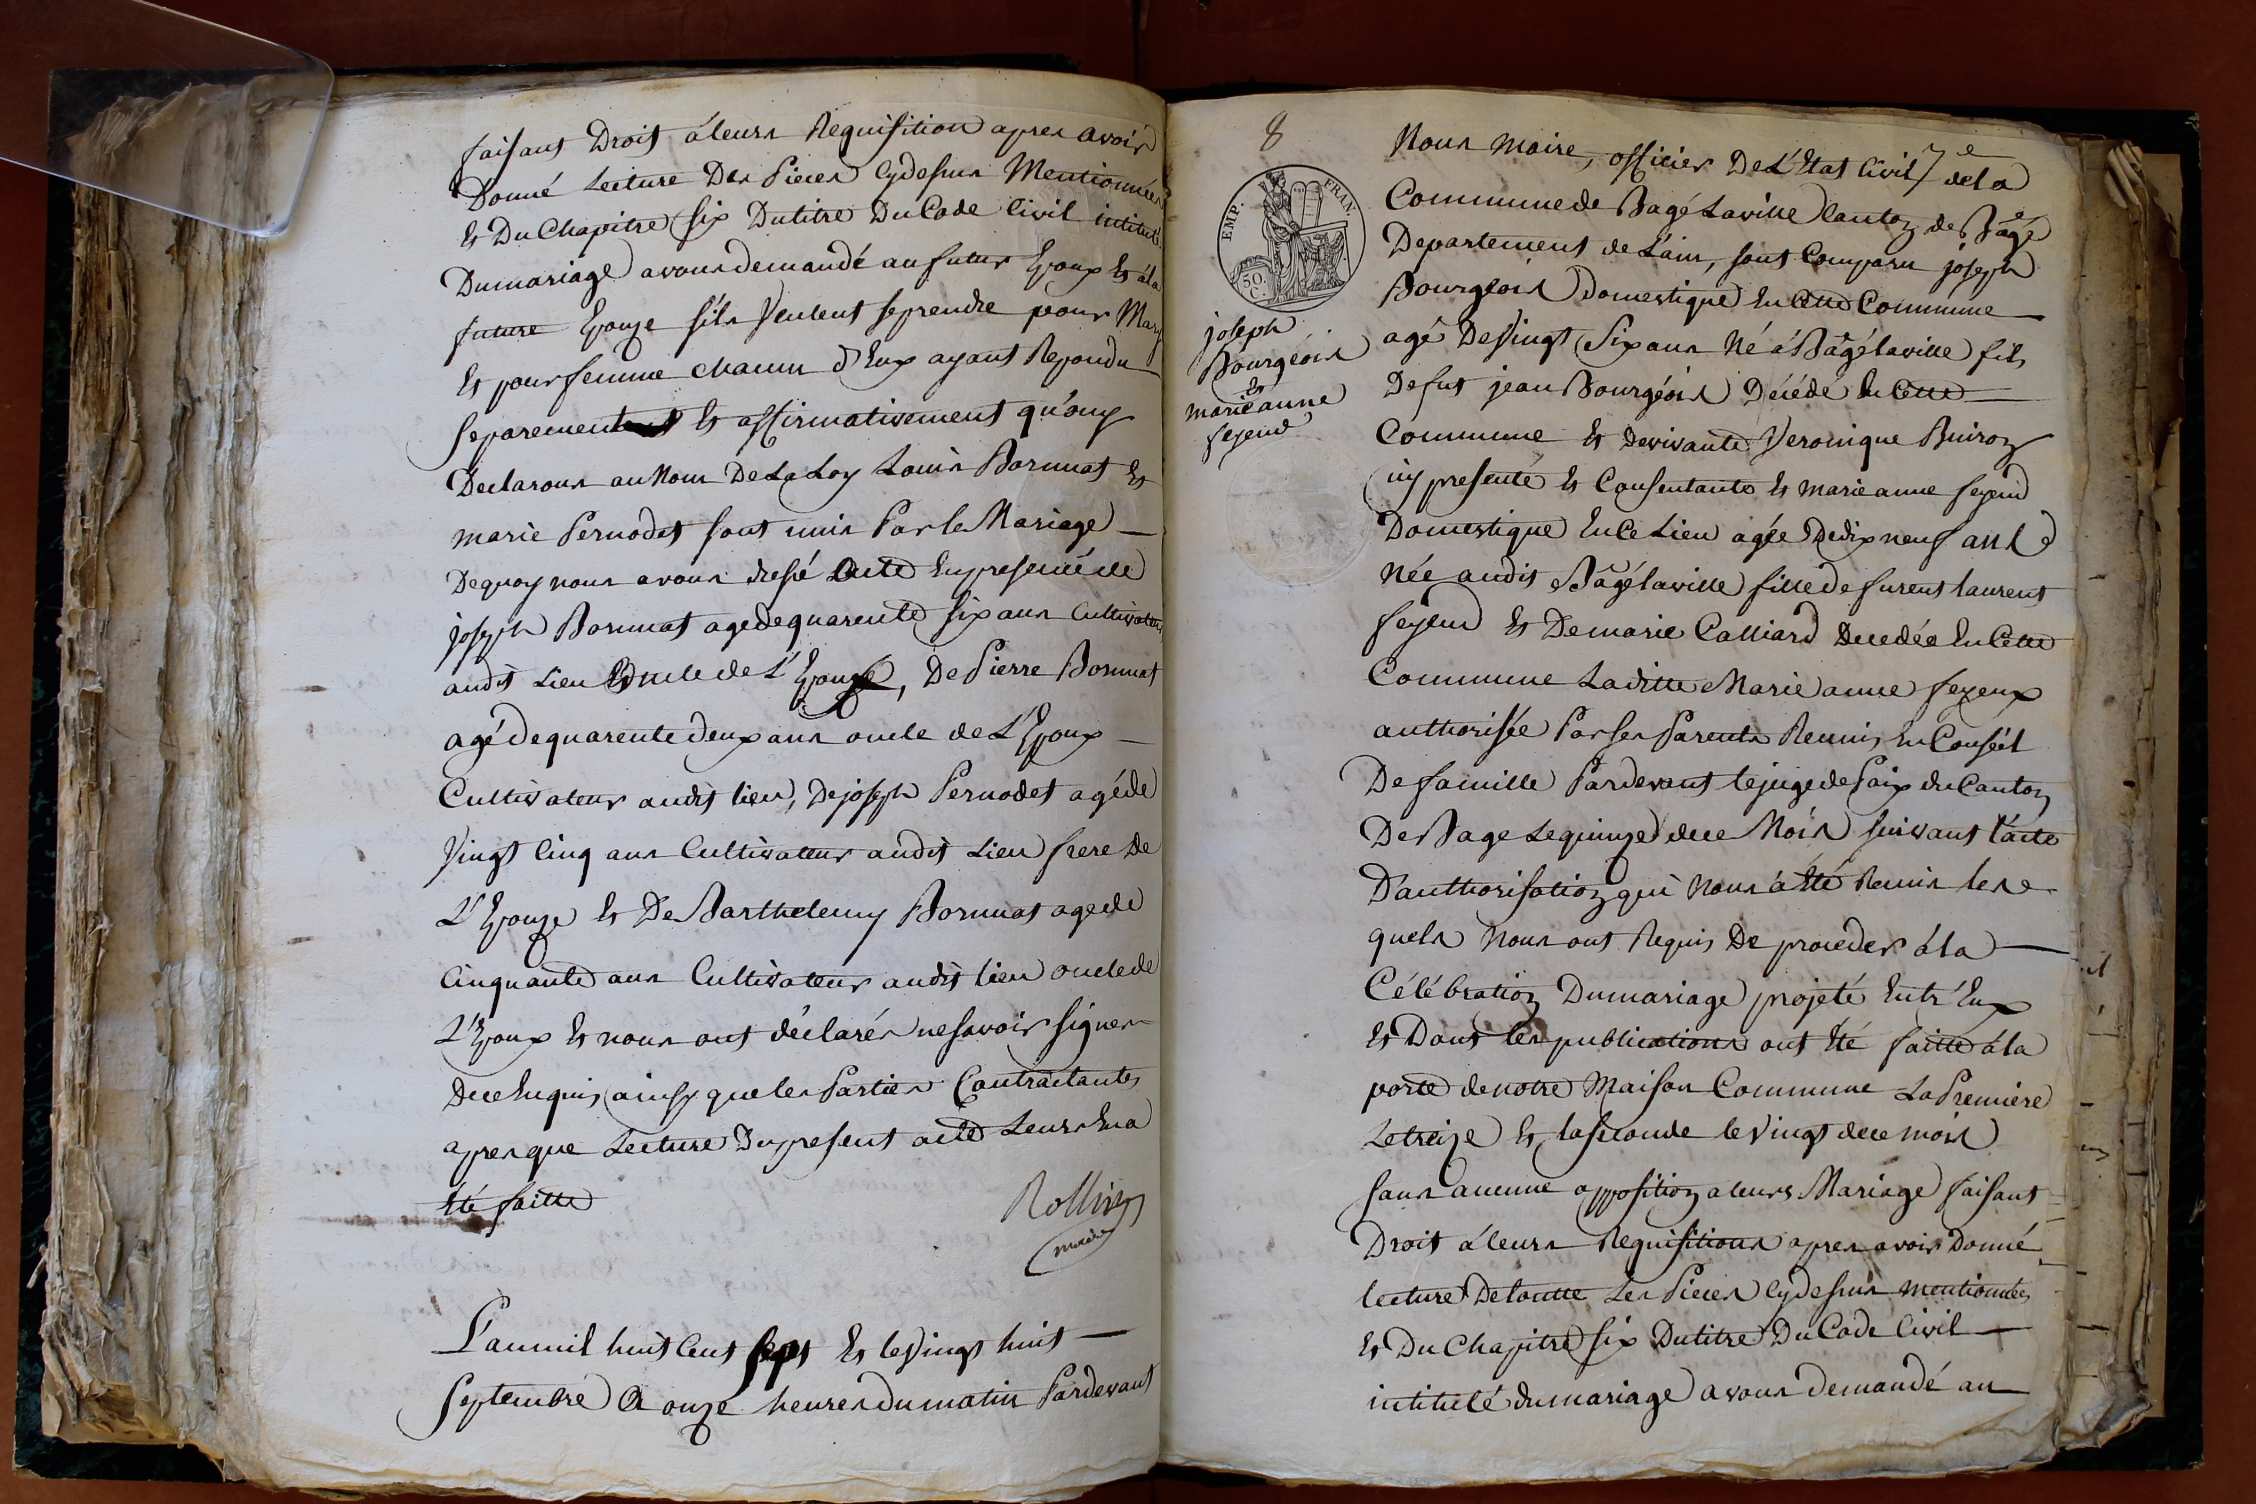 faisant Droit á leurs Requisition apres avoir
Donné Lecture Des Pieces Cydessus Mentionnées
Et Du Chapitre Six Dutitre Du Code Civil intitulé
Dumariage avons demandé au futur Epoux Et á la
future Epouze S'ils Veulent se prendre pour Mary
Et pour femme chacun d'Eux ayant Repondu
separement Et affirmativement qu'ouy
Declarons au Nom De La Loy Louis Bornuat Et
marie Pernodet sont unis Par le Mariage
Dequoy nous avons dressé Acte En presence de
joseph Bornuat age de quarente six ans Cultivateur
audit Lieu Oncle de L'Epouze, De Pierre Bornuat
agé de quarente deux ans oncle de L'Epoux
Cultivateur audit lieu, De joseph Pernodet agé de
Vingt Cinq ans Cultivateur audit Lieu frere De
L'Epouze Et De Barthelemy Bornuat age de
Cinquante ans Cultivateur audit lieu oncle de
L'Epoux Et nous ont déclarés ne savoir signer
De ce Enquis, ainsy que les Parties Contractantes
apres que Lecture Du present acte Leurs En a
Eté faitte
Rollin
maire
L'an mil huit Cent sept Et le Vingt huit
Septembre A onze heures du matin Pardevant
8
EMP. FRAN.
50 C.
joseph
Bourgeois
Et
marie anne
feyeud
Nous Maire, officier De L'Etat Civil de la
Commune de Bagé Laville Canton de Bâgé
Departement de L'ain, sont Comparu joseph
Bourgeois Domestique En Cette Commune
agé De Vingt Six ans Né á Bâgélaville fils
De fut jean Bourgéois Décédé En Cette
Commune Et De vivante Veronique Buiron
icy presente Et Consentante Et marie anne feyeud
Domestique En Ce Lieu agée De dix neuf ans
Née audit Bâgélaville fille de furent laurent
feyeud Et De marie Calliard Decedée En Cette
Commune Laditte Marie anne feyeux
authorisée Par ses Parents Reunis En Conseil
De famille Pardevant le juge de Paix du Canton
De Bage Le quinze de ce Mois suivant l'acte
D'authorisation qui Nous á Eté Remis les
quels Nous ont Requis De proceder á la
Célébration Dumariage projeté Entr'Eux
Et Dont les publications ont Eté faitte á la
porte de notre Maison Commune La Premiere
Le treize Et la seconde le Vingt de ce mois
sans aucune opposition a leurs Mariage faisant
Droit á leurs Requisitions apres avoir Donné
lecture De toutte Les Pieces Cydessus mentionnées
Et Du Chapitre six Dutitre Du Code Civil
intitulé du mariage avons demandé au